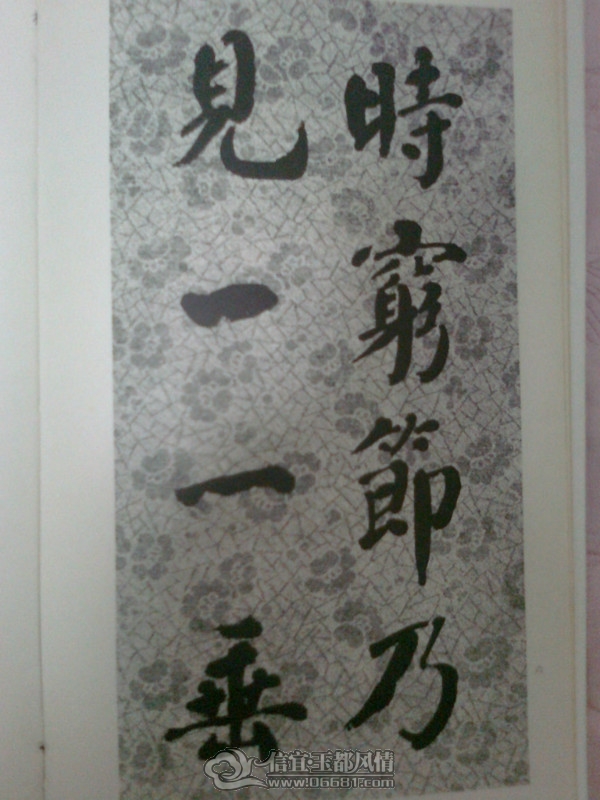 時窮節乃
見一一垂
信宜·玉都风情
www.06681.com